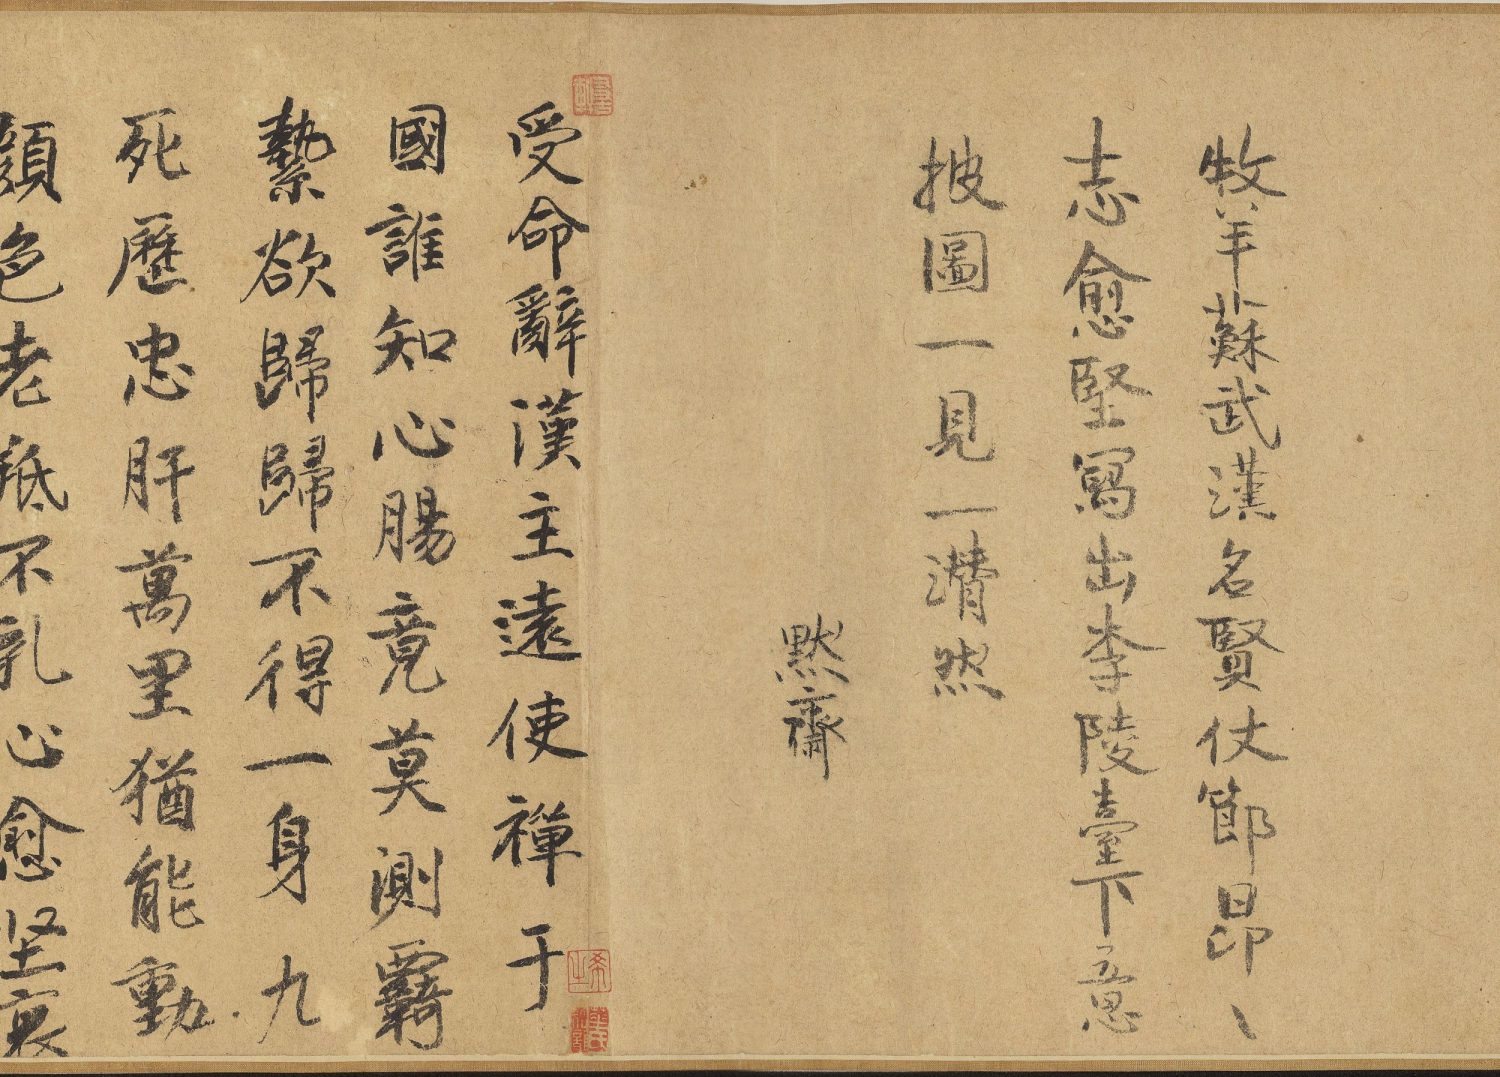 牧羊蘇武漢名賢仗節昂〻
志愈堅寫出李陵臺下意
披圖一見一潸然
默齋
受命辭漢主遠使禪于
國誰知心腸竟莫測羈
縶欲歸歸不得一身九
死歷忠肝萬里猶能動
顏色老羝不乳心愈堅裹